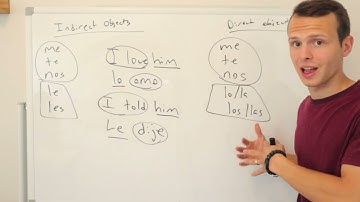 Indirect Objects
me
te
nos
le
les
I love him
lo amo
I told him
Le dije
Direct
me
te
nos
lo/la
los/las